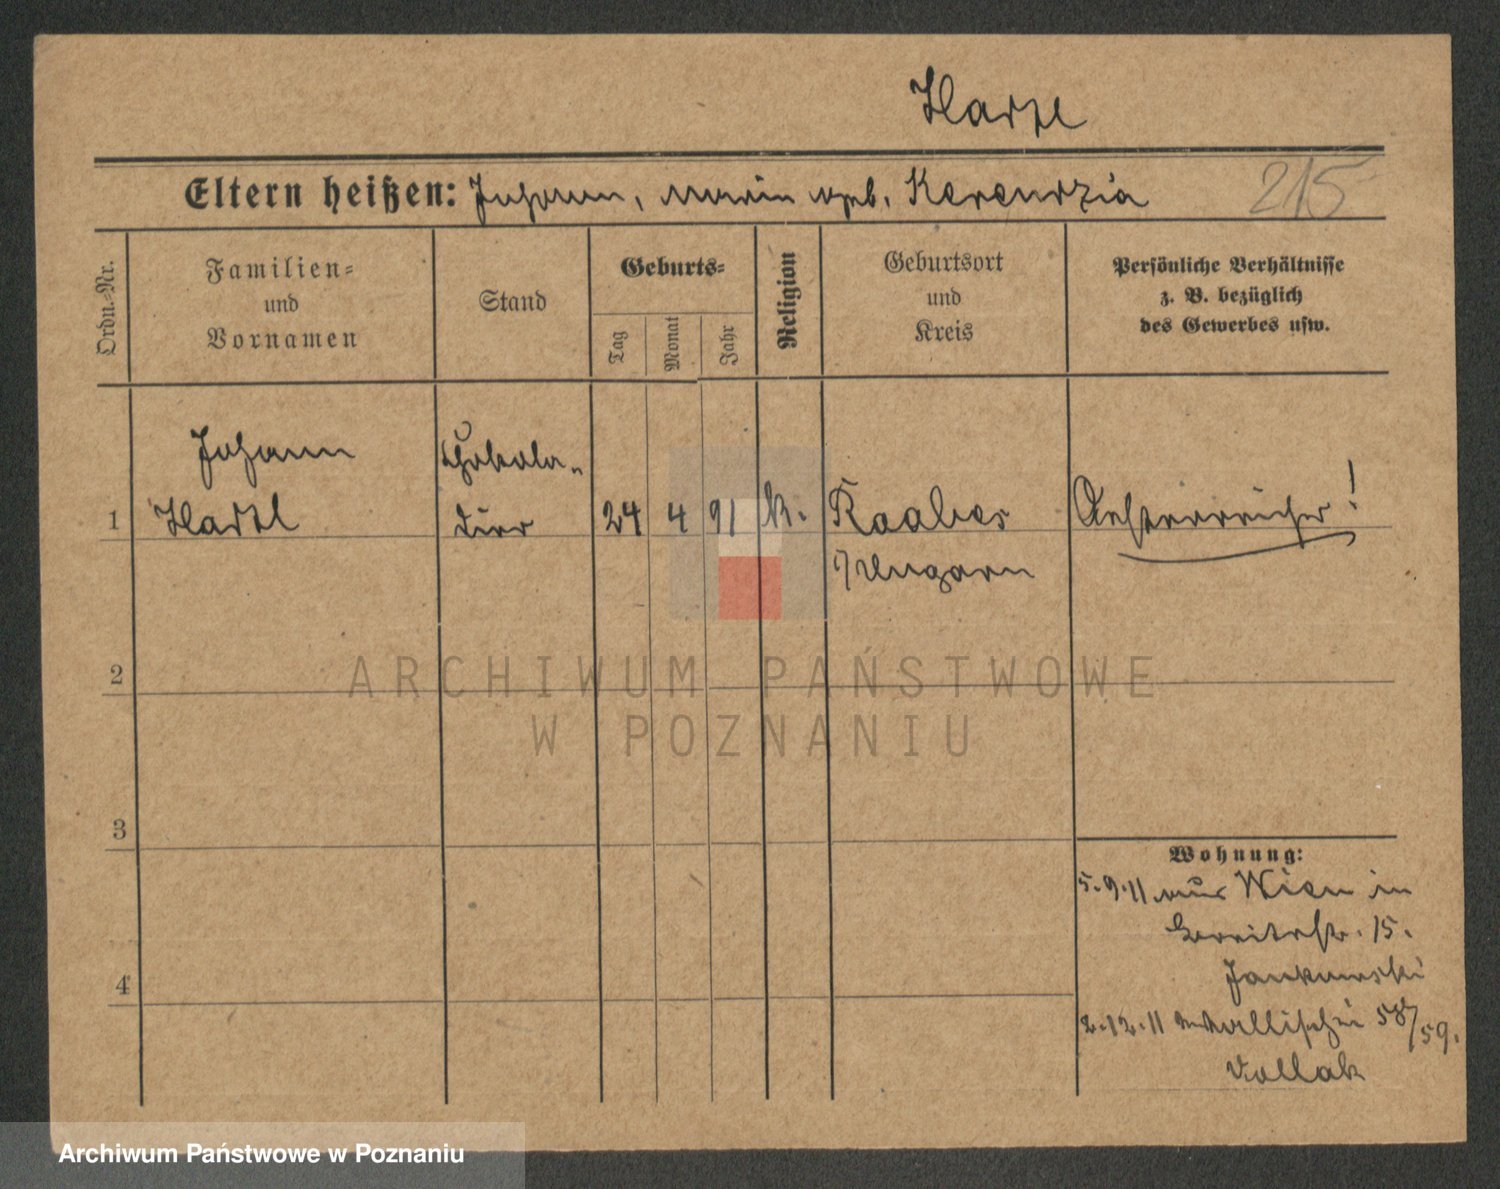 Hartl
Eltern heißen: Johann, Maria geb. Kerenrzia
215
Ordn.=Nr.
Familien=
und
Vornamen
Stand
Geburts=
Tag
Monat
Jahr
Religion
Geburtsort
und
Kreis
Persönliche Verhältnisse
z. B. bezüglich
des Gewerbes usw.
Johann
Schokola-
1 Hartl dier 24 4 91 k. Raabes Oesterreicher!
i/Ungarn
2
3
4
Wohnung:
5.9.11 aus Wien in
Breitestr. 15.
Jankowski
2.12.11 Wallischei 58/59.
Pollak
ARCHIWUM PAŃSTWOWE
W POZNANIU
Archiwum Państwowe w Poznaniu